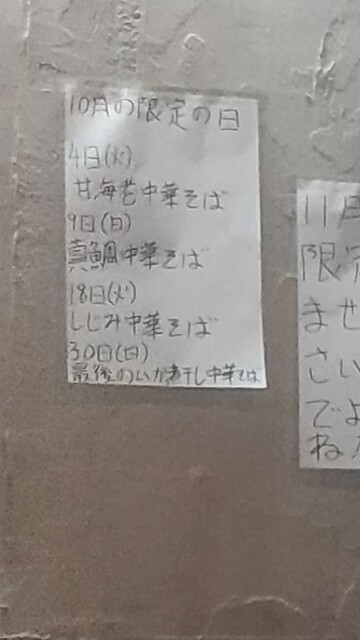 10月の限定の日
4日(火)
甘海老中華そば
9日(日)
真鯛中華そば
18日(火)
しじみ中華そば
30日(日)
最後のいか煮干し中華そば
11月
限定
ませ
さい
でよ
ね